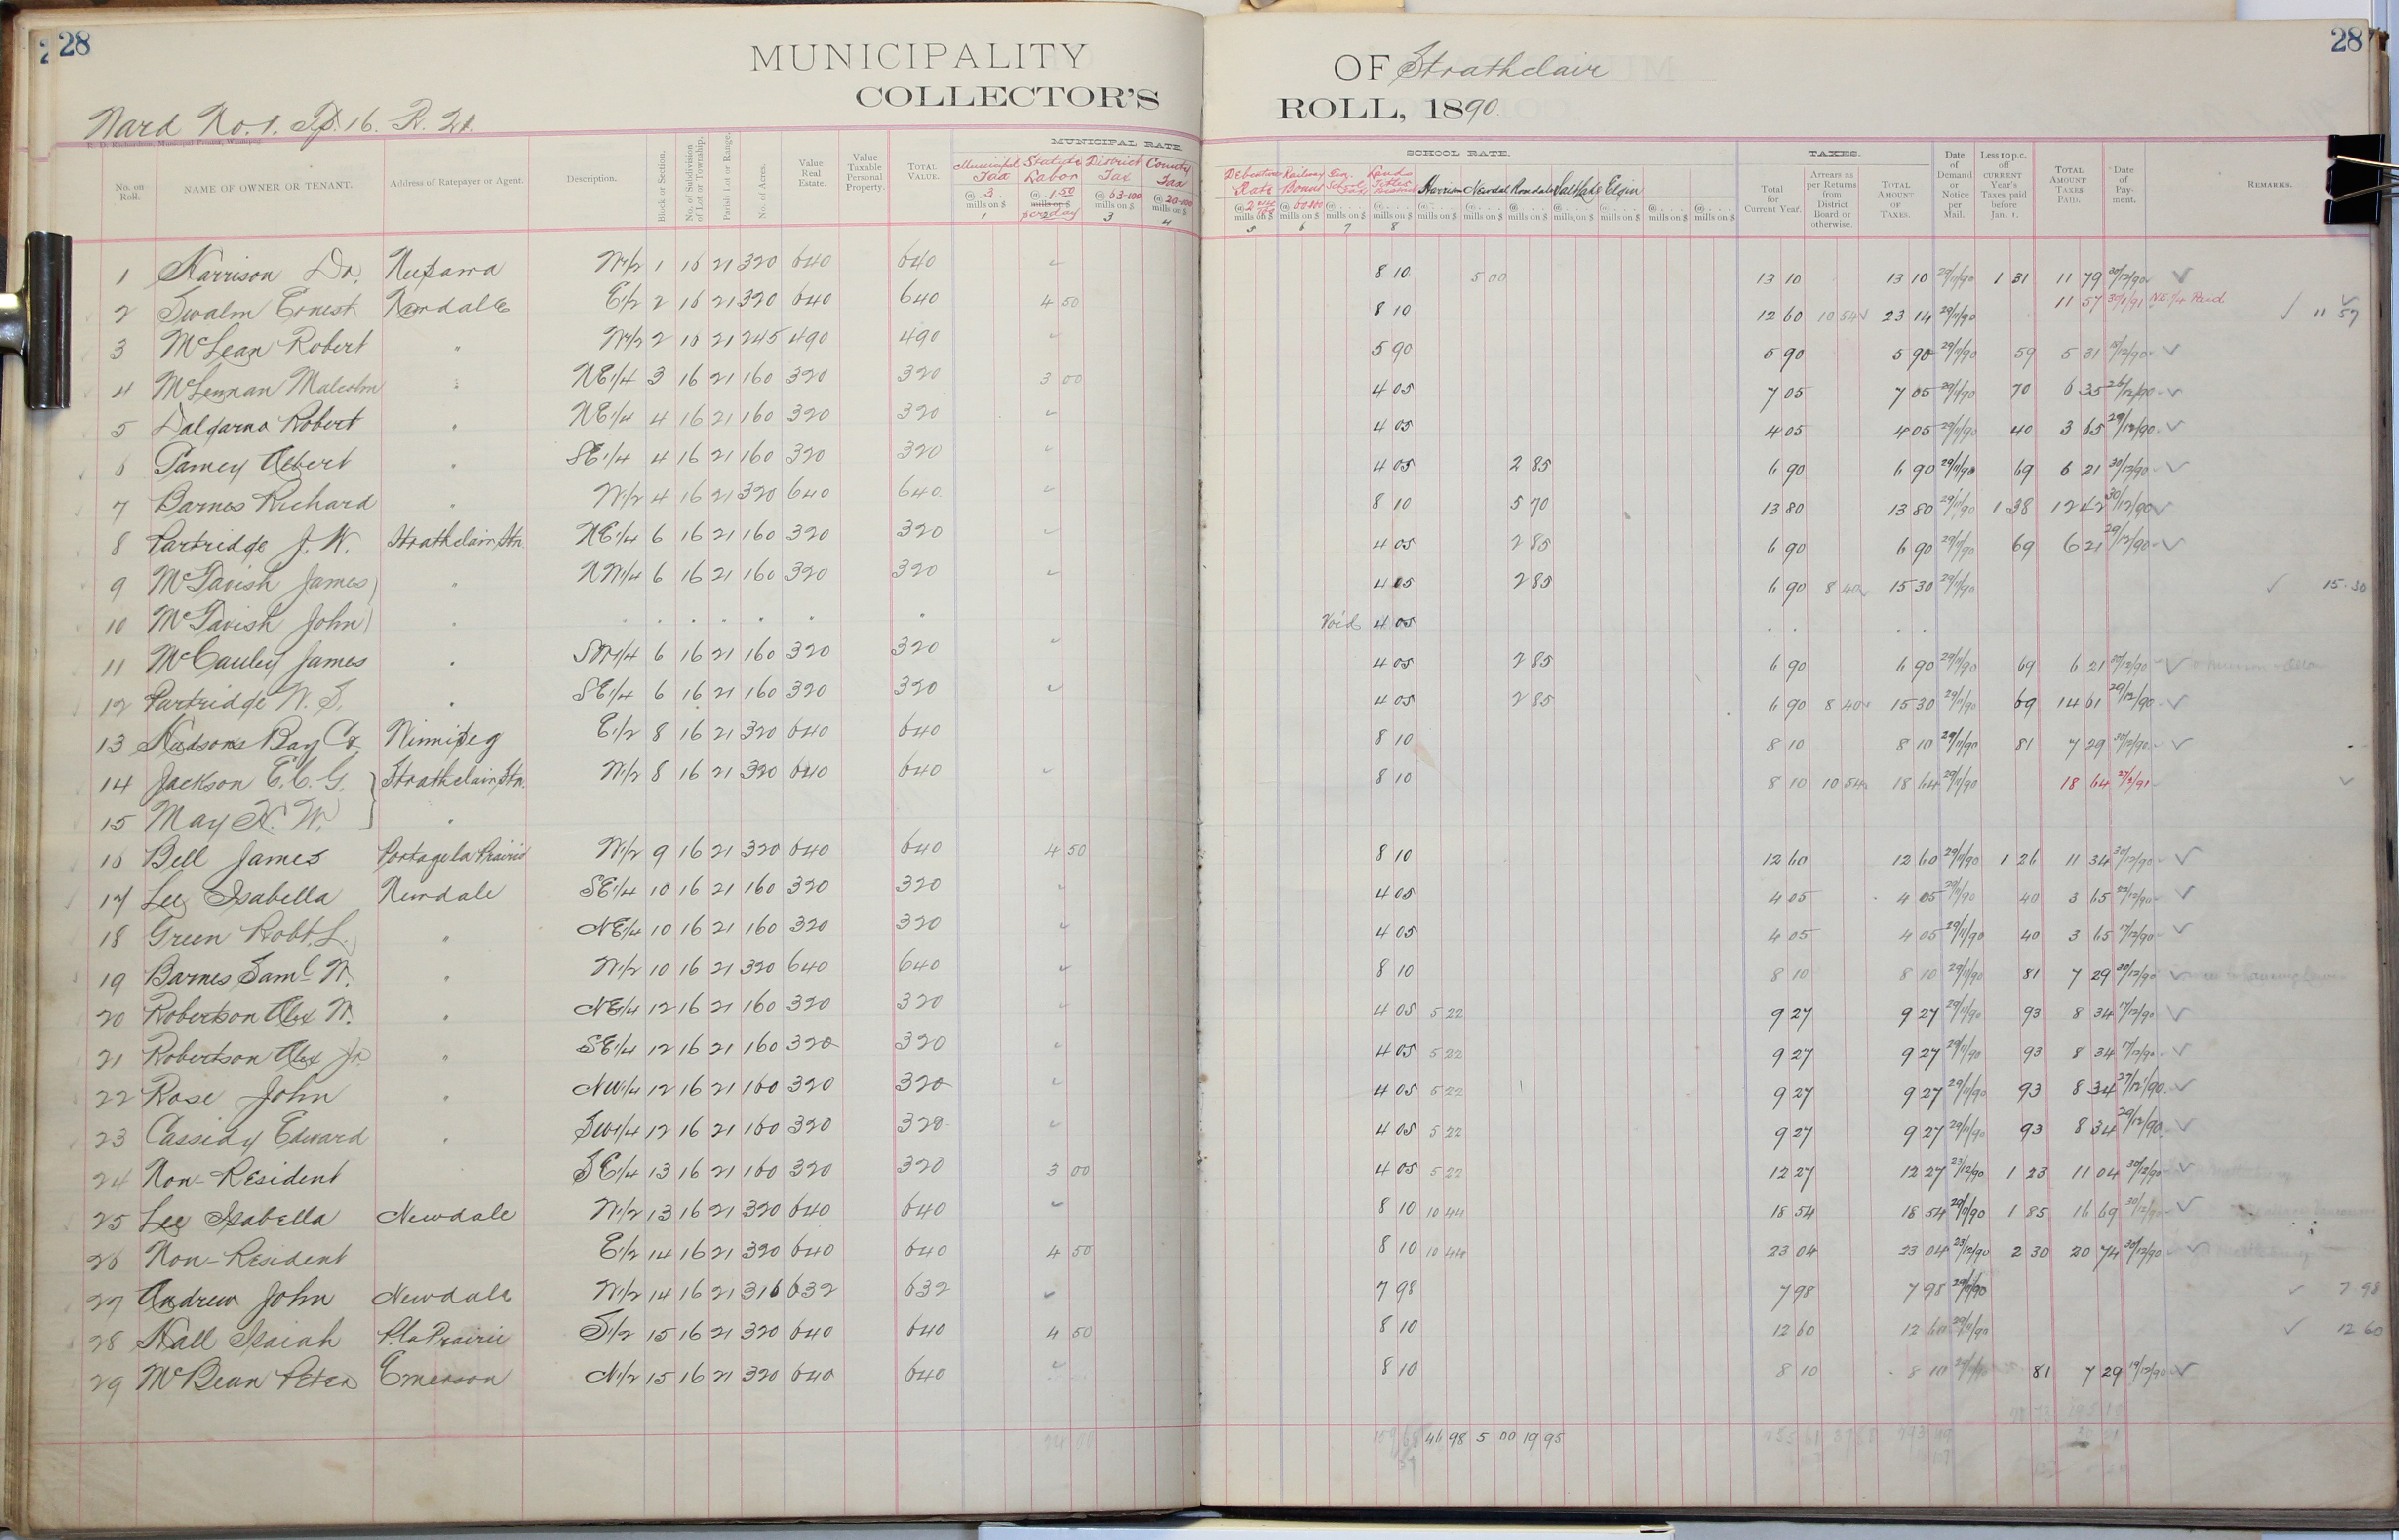 28
MUNICIPALITY OF Strathclair
28
COLLECTOR'S ROLL, 1890.
Ward No. 1. Tp. 16. R. 21.
R. D. Richardson, Municipal Printer, Winnipeg
MUNICIPAL RATE. SCHOOL RATE. TAXES.
No. on Roll. NAME OF OWNER OR TENANT. Address of Ratepayer or Agent. Description. Block or Section. No. of Subdivision of Lot or Township. Parish Lot or Range. No. of Acres. Value Real Estate. Value Taxable Personal Property. TOTAL VALUE. Municipal Tax @ 3 mills on $ 1 Statute Labor @ 1.50 mills on $ per day 2 District Tax @ 63-100 mills on $ 3 County Tax @ 20-100 mills on $ 4 Debenture Rate @ 2 mills on $ 5 Railway Bonus @ 60-100 mills on $ 6 mills on $ 7 mills on $ 8 Harrison mills on $ Newdale mills on $ Rosedale mills on $ Salt Lake mills on $ Elgin mills on $ mills on $ mills on $ Total for Current Year. Arrears as per Returns from District Board or otherwise. TOTAL AMOUNT OF TAXES. Date of Demand or Notice per Mail. Less 10 p.c. off CURRENT Year's Taxes paid before Jan. 1. TOTAL AMOUNT TAXES PAID. Date of Payment. REMARKS.
1 Harrison Dr. Neepawa W1/2 1 16 21 320 640 640 ✓ 8 10 5 00 13 10 13 10 29/11/90 1 31 11 79 30/12/90 ✓
2 Swalm Ernest Newdale E1/2 2 16 21 320 640 640 4 50 8 10 12 60 10 54 ✓ 23 14 29/11/90 11 57 30/1/91 NE 1/4 Paid ✓ 11 57
3 McLean Robert " W1/2 2 16 21 245 490 490 ✓ 5 90 5 90 5 90 29/11/90 59 5 31 15/12/90 ✓
4 McLennan Malcolm " NE1/4 3 16 21 160 320 320 3 00 4 05 7 05 7 05 29/11/90 70 6 35 26/12/90 ✓
5 Dalgarno Robert " NE1/4 4 16 21 160 320 320 ✓ 4 05 4 05 4 05 29/11/90 40 3 65 29/12/90 ✓
6 Pamey Albert " SE1/4 4 16 21 160 320 320 ✓ 4 05 2 85 6 90 6 90 29/11/90 69 6 21 30/12/90 ✓
7 Barnes Richard " W1/2 4 16 21 320 640 640 ✓ 8 10 5 70 13 80 13 80 29/11/90 1 38 12 42 30/12/90 ✓
8 Partridge J. W. Strathclair Stn. NE1/4 6 16 21 160 320 320 ✓ 4 05 2 85 6 90 6 90 29/11/90 69 6 21 29/12/90 ✓
9 McTavish James " NW1/4 6 16 21 160 320 320 ✓ 4 05 2 85 6 90 8 40 ✓ 15 30 29/11/90 ✓ 15.30
10 McTavish John " . . . . . . . Void 4 05 . . . .
11 McCauley James " SW1/4 6 16 21 160 320 320 ✓ 4 05 2 85 6 90 6 90 29/11/90 69 6 21 29/12/90 ✓
12 Partridge W. T. " SE1/4 6 16 21 160 320 320 ✓ 4 05 2 85 6 90 8 40 15 30 29/11/90 69 14 61 29/12/90 ✓
13 Hudsons Bay Co. Winnipeg E1/2 8 16 21 320 640 640 8 10 8 10 8 10 29/11/90 81 7 29 30/12/90 ✓
14 Jackson E. C. G. Strathclair Stn. W1/2 8 16 21 320 640 640 ✓ 8 10 8 10 10 54 18 64 29/11/90 18 64 27/2/91 ✓
15 May H. W. "
16 Bell James Portage la Prairie W1/2 9 16 21 320 640 640 4 50 8 10 12 60 12 60 29/11/90 1 26 11 34 30/12/90 ✓
17 Lee Isabella Newdale SE1/4 10 16 21 160 320 320 ✓ 4 05 4 05 4 05 29/11/90 40 3 65 22/12/90 ✓
18 Green Robt. L. " NE1/4 10 16 21 160 320 320 ✓ 4 05 4 05 4 05 29/11/90 40 3 65 17/12/90 ✓
19 Barnes Saml W. " W1/2 10 16 21 320 640 640 ✓ 8 10 8 10 8 10 29/11/90 81 7 29 30/12/90 ✓
20 Robertson Alex W. " NE1/4 12 16 21 160 320 320 ✓ 4 05 5 22 9 27 9 27 29/11/90 93 8 34 17/12/90 ✓
21 Robertson Alex Jr. " SE1/4 12 16 21 160 320 320 ✓ 4 05 5 22 9 27 9 27 29/11/90 93 8 34 17/12/90 ✓
22 Rose John " NW1/4 12 16 21 160 320 320 ✓ 4 05 5 22 9 27 9 27 29/11/90 93 8 34 27/12/90 ✓
23 Cassidy Edward " SW1/4 12 16 21 160 320 320 ✓ 4 05 5 22 9 27 9 27 29/11/90 93 8 34 29/12/90 ✓
24 Non-Resident SE1/4 13 16 21 160 320 320 3 00 4 05 5 22 12 27 12 27 23/12/90 1 23 11 04 30/12/90 ✓
25 Lee Isabella Newdale W1/2 13 16 21 320 640 640 ✓ 8 10 10 44 18 54 18 54 29/11/90 1 85 16 69 30/12/90 ✓
26 Non-Resident E1/2 14 16 21 320 640 640 4 50 8 10 10 44 23 04 23 04 23/12/90 2 30 20 74 30/12/90 ✓
27 Andrew John Newdale W1/2 14 16 21 316 632 632 ✓ 7 98 7 98 7 98 29/11/90 ✓ 7.98
28 Hall Isaiah P. la Prairie S1/2 15 16 21 320 640 640 4 50 8 10 12 60 12 60 29/11/90 ✓ 12 60
29 McBean Peter Emerson N1/2 15 16 21 320 640 640 ✓ 8 10 8 10 8 10 29/11/90 81 7 29 19/12/90 ✓
24 00 46 98 5 00 19 95